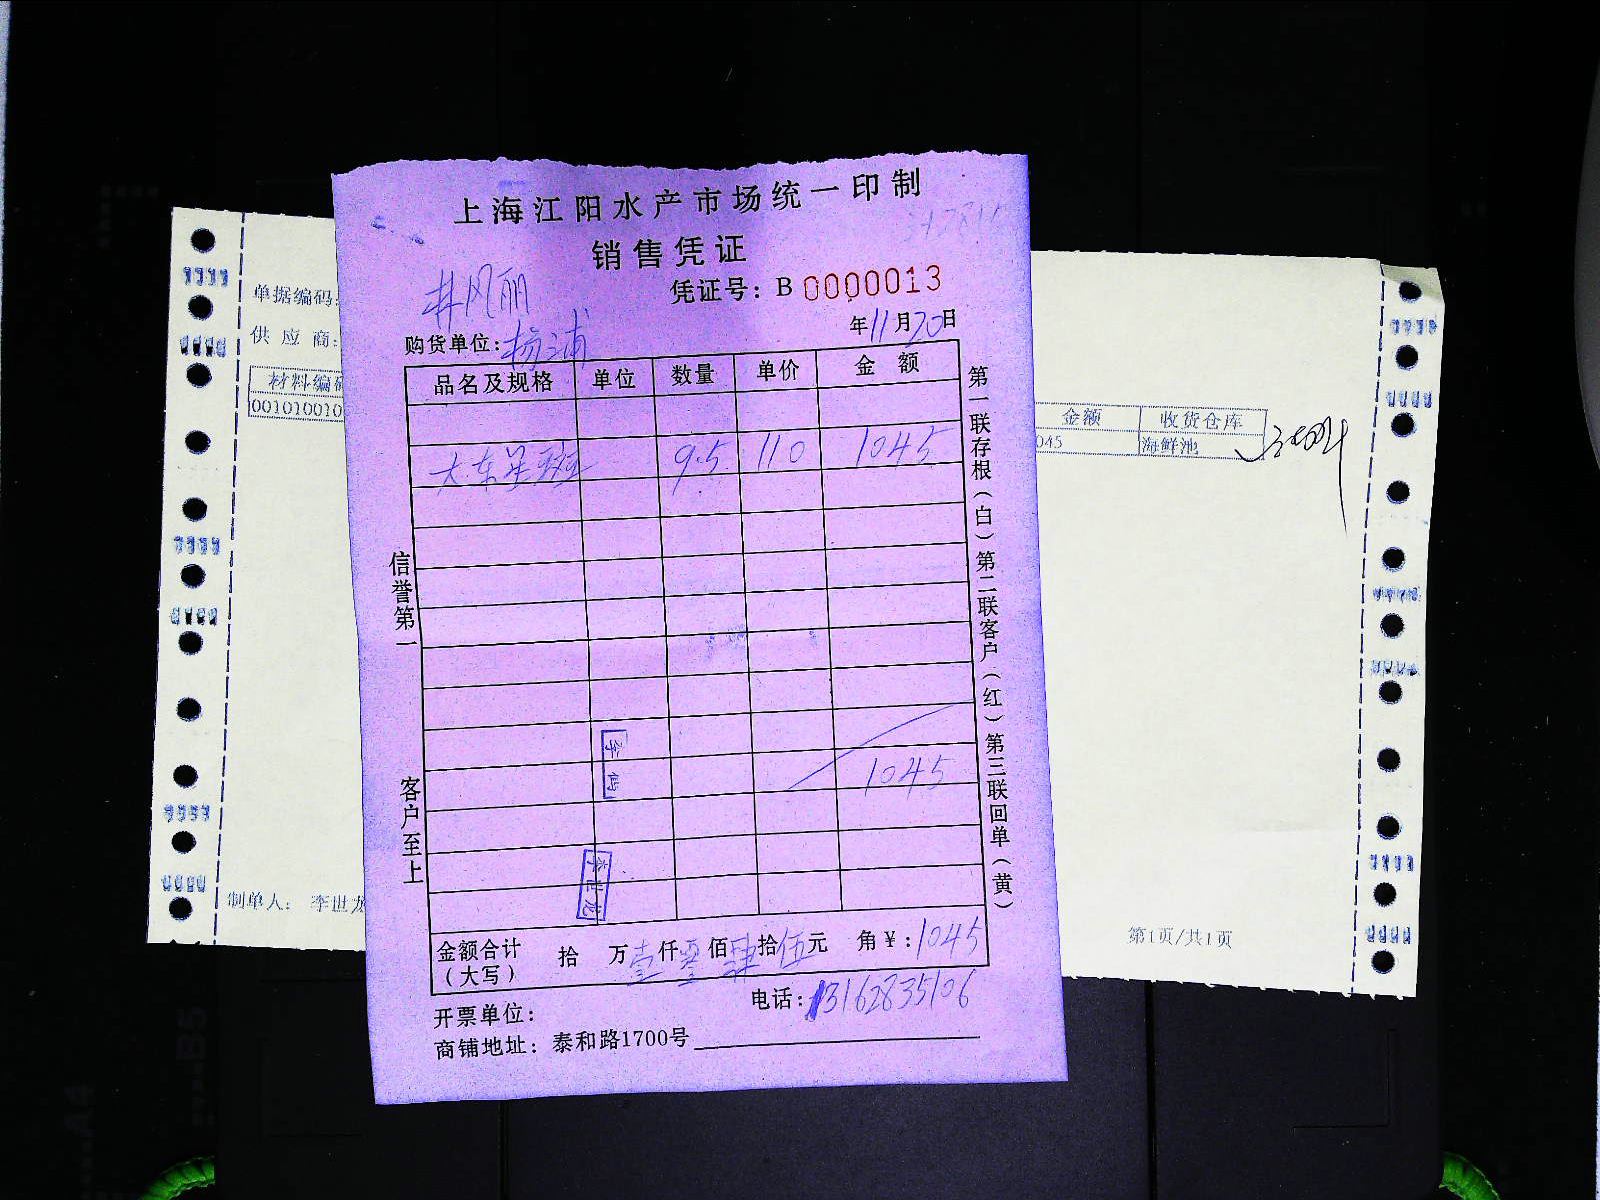 上海江阳水产市场统一印制
销售凭证
凭证号：B 0000013
井风丽
年11月20日
购货单位：杨浦
品名及规格 单位 数量 单价 金 额
大东星斑 9.5 110 1045
1045
李世龙
金额合计（大写） 拾 万壹仟零佰肆拾伍元 角￥：1045
电话：13162835106
开票单位：
商铺地址：泰和路1700号
信誉第一
客户至上
第一联存根（白）第二联客户（红）第三联回单（黄）
单据编码：
供 应 商：
材料编码
001010010
制单人： 李世龙
金额 收货仓库
045 海鲜池
第1页/共1页